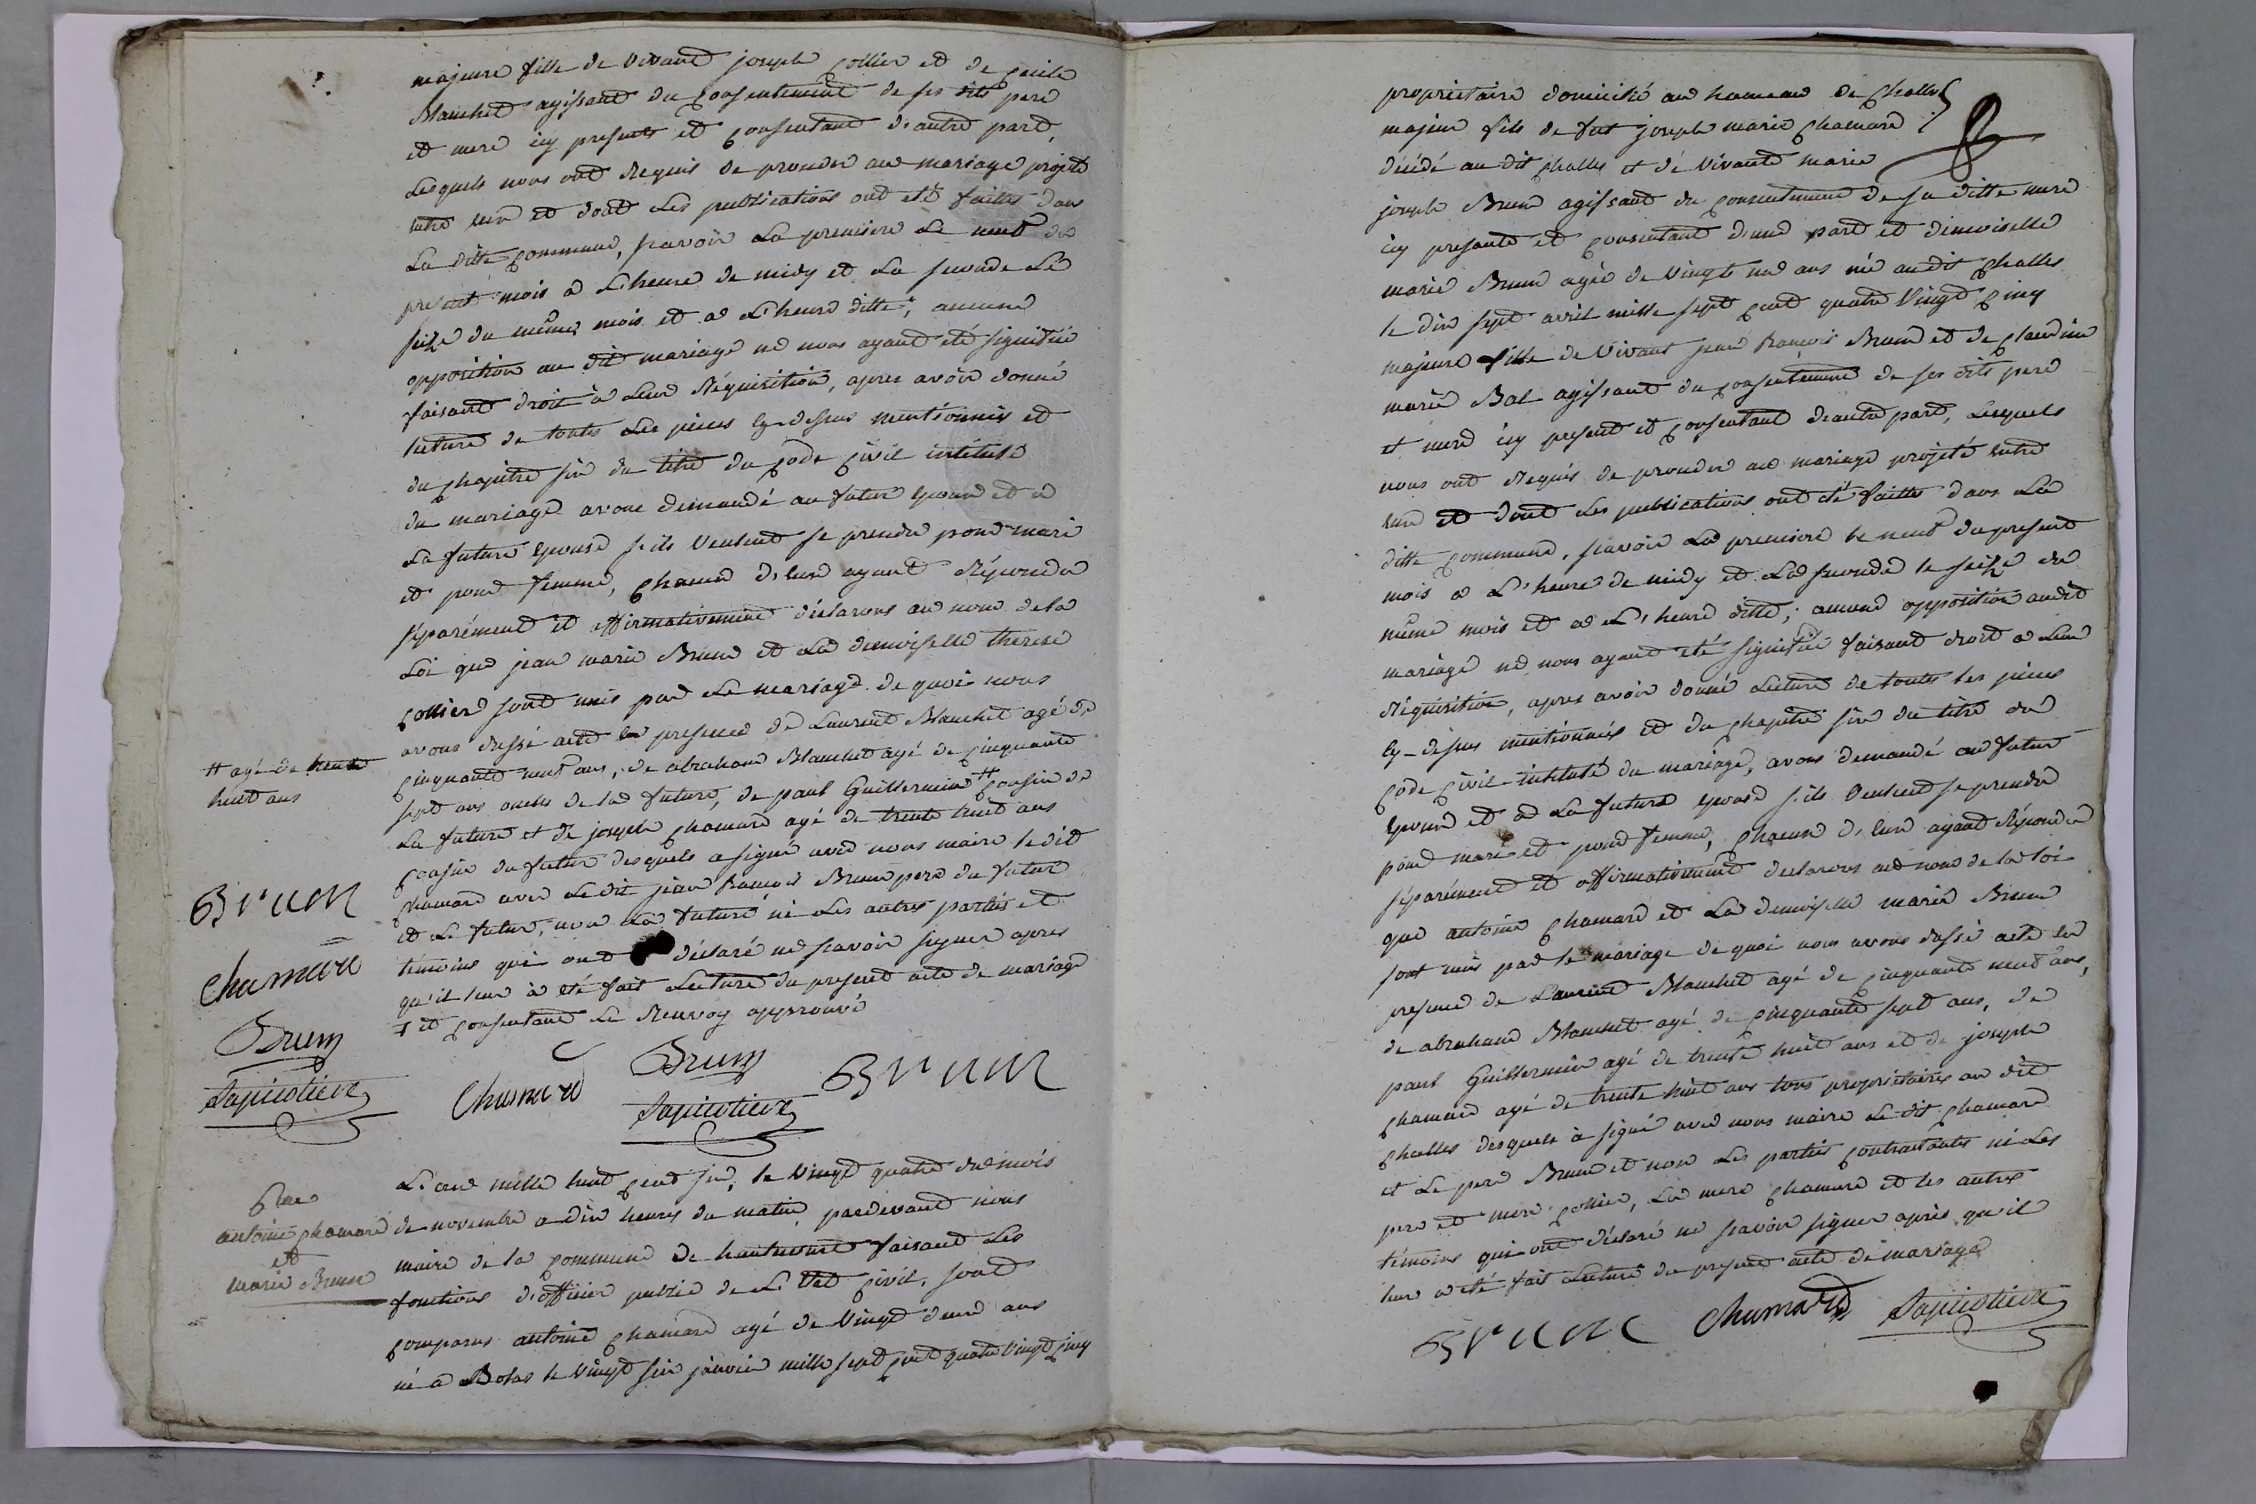 majeure fille de vivant joseph collier et de cecile
Blanchet agissant du consentement de ses dits pere
et mere icy presents et consentant d'autre part,
Lesquels nous ont requis de proceder au mariage projeté
entre eux et dont les publications ont été faites dans
La ditte commune, scavoir La premiere Le neuf du
present mois a L'heure de midy et La seconde Le
seize du même mois et a L'heure ditte; aucune
opposition au dit mariage ne nous ayant été signifiée
faisant droit à leur réquisition, apres avoir donné
lecture de toutes Les pieces cy-dessus mentionnées et
du chapitre six du titre du code civil intitulé
du mariage avons demandé au futur epoux et a
La future epouse s'ils veulent se prendre pour mari
et pour femme, chacun d'eux ayant répondu
séparément et affirmativement déclarons au nom de la
Loi que jean marie Brun et La demoiselle therese
collier sont unis par Le mariage de quoi nous
avons dressé acte en presence de Laurent Blanchet agé de
cinquante neuf ans, de abraham Blanchet agé de cinquante
sept ans oncles de la future, de paul Guillermin # cousin de
# agé de trente
huit ans
La future et de joseph chamard agé de trente huit ans
cousin du futur desquels a signé avec nous maire le dit
chamard avec Le dit jean francois Brun pere du futur
et Le futur, non La future ni Les autres parties et
témoins qui ont déclaré ne scavoir signer apres
qu'il leur a été fait Lecture du present acte de mariage
et consentant Le Renvoy approuvé
Brun
chamard
Brun
Lapicotiere
Chamard Brun Lapicotiere Brun
6me
antoine chamard
et
marie Brun
L'an mille huit cent six, le vingt quatre du mois
de novembre a dix heures du matin, pardevant nous
maire de la commune de hautecourt faisant Les
fonctions d'officier public de L'état civil, sont
comparus antoine chamard agé de vingt deux ans
né a Bolas le vingt six janvier mille sept cent quatre vingt cinq
proprietaire domicilié au hameau de challes
majeur fils de fut joseph marie chamard
décédé au dit challes et de vivante marie
joseph Brun agissant du consentement de sa ditte mere
icy presente et consentant d'une part et demoiselle
marie Brun agée de vingt un ans née audit challes
le dix sept avril mille sept cent quatre vingt cinq
majeure fille de vivant jean francois Brun et de claudine
marie Bal agissant du consentement de ses dits pere
et mere icy present et consentant d'autre part, Lesquels
nous ont requis de proceder au mariage projeté entre
eux et dont Les publications ont été faittes dans La
ditte commune, scavoir La premiere le neuf du present
mois a L'heure de midy et La seconde le seize du
même mois et a L'heure ditte; aucune opposition audit
mariage ne nous ayant été signifiée faisant droit a Leur
réquisition, apres avoir donné Lecture de toutes les pieces
cy-dessus mentionnées et du chapitre six du titre du
code civil intitulé du mariage, avons demandé au futur
epoux et a La future epouse s'ils veulent se prendre
pour mari et pour femme, chacun d'eux ayant répondu
séparément et affirmativement declarons au nom de la loi
que antoine chamard et La demoiselle marie Brun
sont unis par le mariage de quoi nous avons dressé acte en
presence de Laurent Blanchet agé de cinquante neuf ans,
de abraham Blanchet agé de cinquante sept ans, de
paul Guillermin agé de trente huit ans et de joseph
chamard agé de trente huit ans tous proprietaires au dit
challes desquels a signé avec nous maire Le dit chamard
et Le pere Brun et non Les parties contractantes ni Les
pere et mere collier, La mere chamard et les autres
témoins qui ont déclaré ne scavoir signer après qu'il
leur a été fait Lecture du present acte de mariage
Brun Chamard Lapicotiere